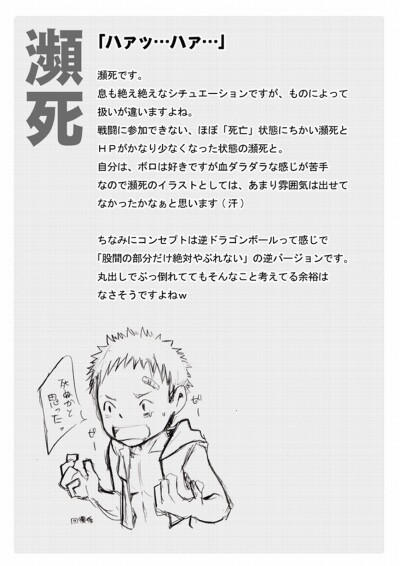 瀕死
「ハァッ…ハァ…」
瀕死です。
息も絶え絶えなシチュエーションですが、ものによって
扱いが違いますよね。
戦闘に参加できない、ほぼ「死亡」状態にちかい瀕死と
ＨＰがかなり少なくなった状態の瀕死と。
自分は、ボロは好きですが血ダラダラな感じが苦手
なので瀕死のイラストとしては、あまり雰囲気は出せて
なかったかなぁと思います（汗）
ちなみにコンセプトは逆ドラゴンボールって感じで
「股間の部分だけ絶対やぶれない」の逆バージョンです。
丸出しでぶっ倒れててもそんなこと考えてる余裕は
なさそうですよねｗ
死ぬかと
思った。
ゼー
ゼー